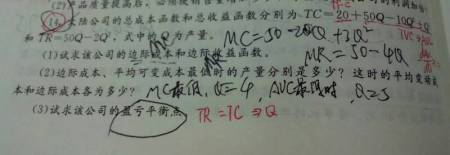 产品质量提高后,必须使销售量增
14. 某公司的总成本函数和总收益函数分别为 TC=20+50Q-10Q²+Q³
和 TR=50Q-2Q²,式中的Q为产量。 MC=50-20Q+3Q²
(1)试求该公司的边际成本和边际收益函数。 MR=50-4Q
(2)边际成本、平均可变成本最低时的产量分别是多少?这时的平均变动成
本和边际成本各为多少? MC最低, Q=4, AVC最低时, Q=5
(3)试求该公司的盈亏平衡点 TR=TC ⇒Q